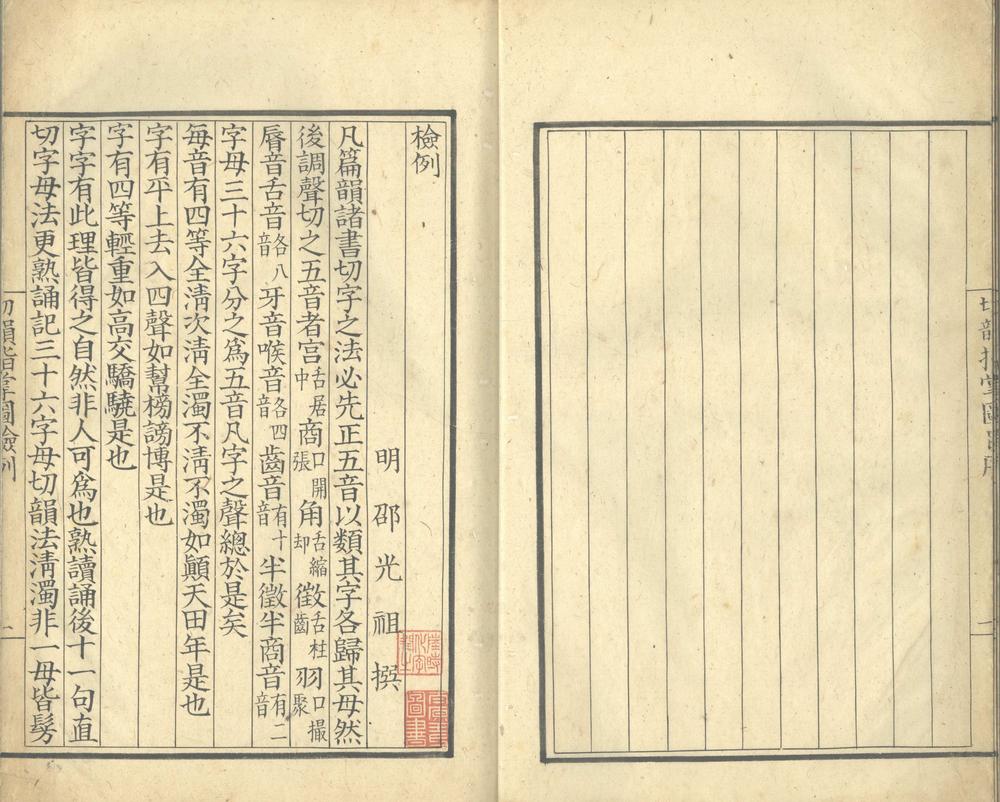 切韻指掌圖
一
檢例
明邵光祖撰
凡篇韻諸書切字之法必先正五音以類其字各歸其母然
後調聲切之五音者宮舌居中商口開張角舌縮却徵舌柱齒羽口撮聚
脣音舌音各八音牙音喉音各四音齒音有十音半徵半商音有二音
字母三十六字分之爲五音凡字之聲總於是矣
每音有四等全淸次淸全濁不淸不濁如顚天田年是也
字有平上去入四聲如幫榜謗博是也
字有四等輕重如高交驕驍是也
字字有此理皆得之自然非人可爲也熟讀誦後十一句直
切字母法更熟誦記三十六字母切韻法淸濁非一母皆髣
切韻指掌圖檢例
一